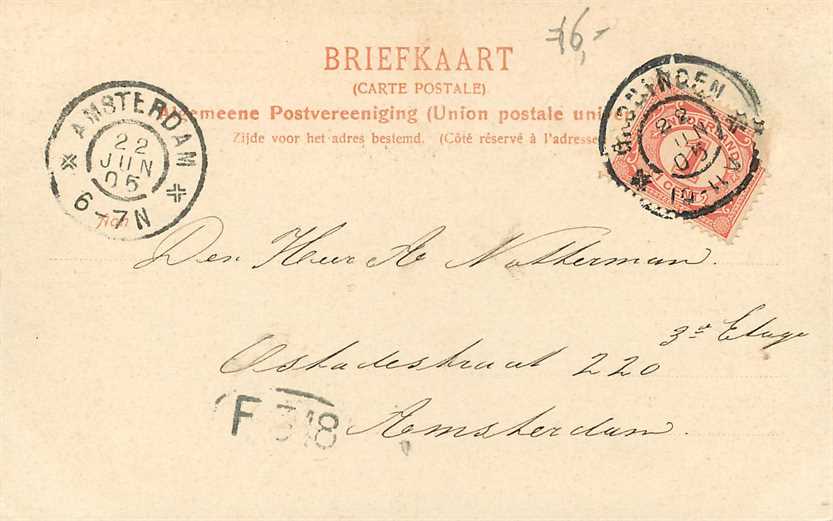 76,-
BRIEFKAART
(CARTE POSTALE)
Algemeene Postvereeniging (Union postale uni
Zijde voor het adres bestemd. (Côté réservé à l'adresse
AMSTERDAM
22
JUN
05
6-7N
22
JUN
05
NEDERLAND
1
CENT
Den Heer A Notterman.
Ostadestraat 220 3e Etage
Amsterdam.
F 318